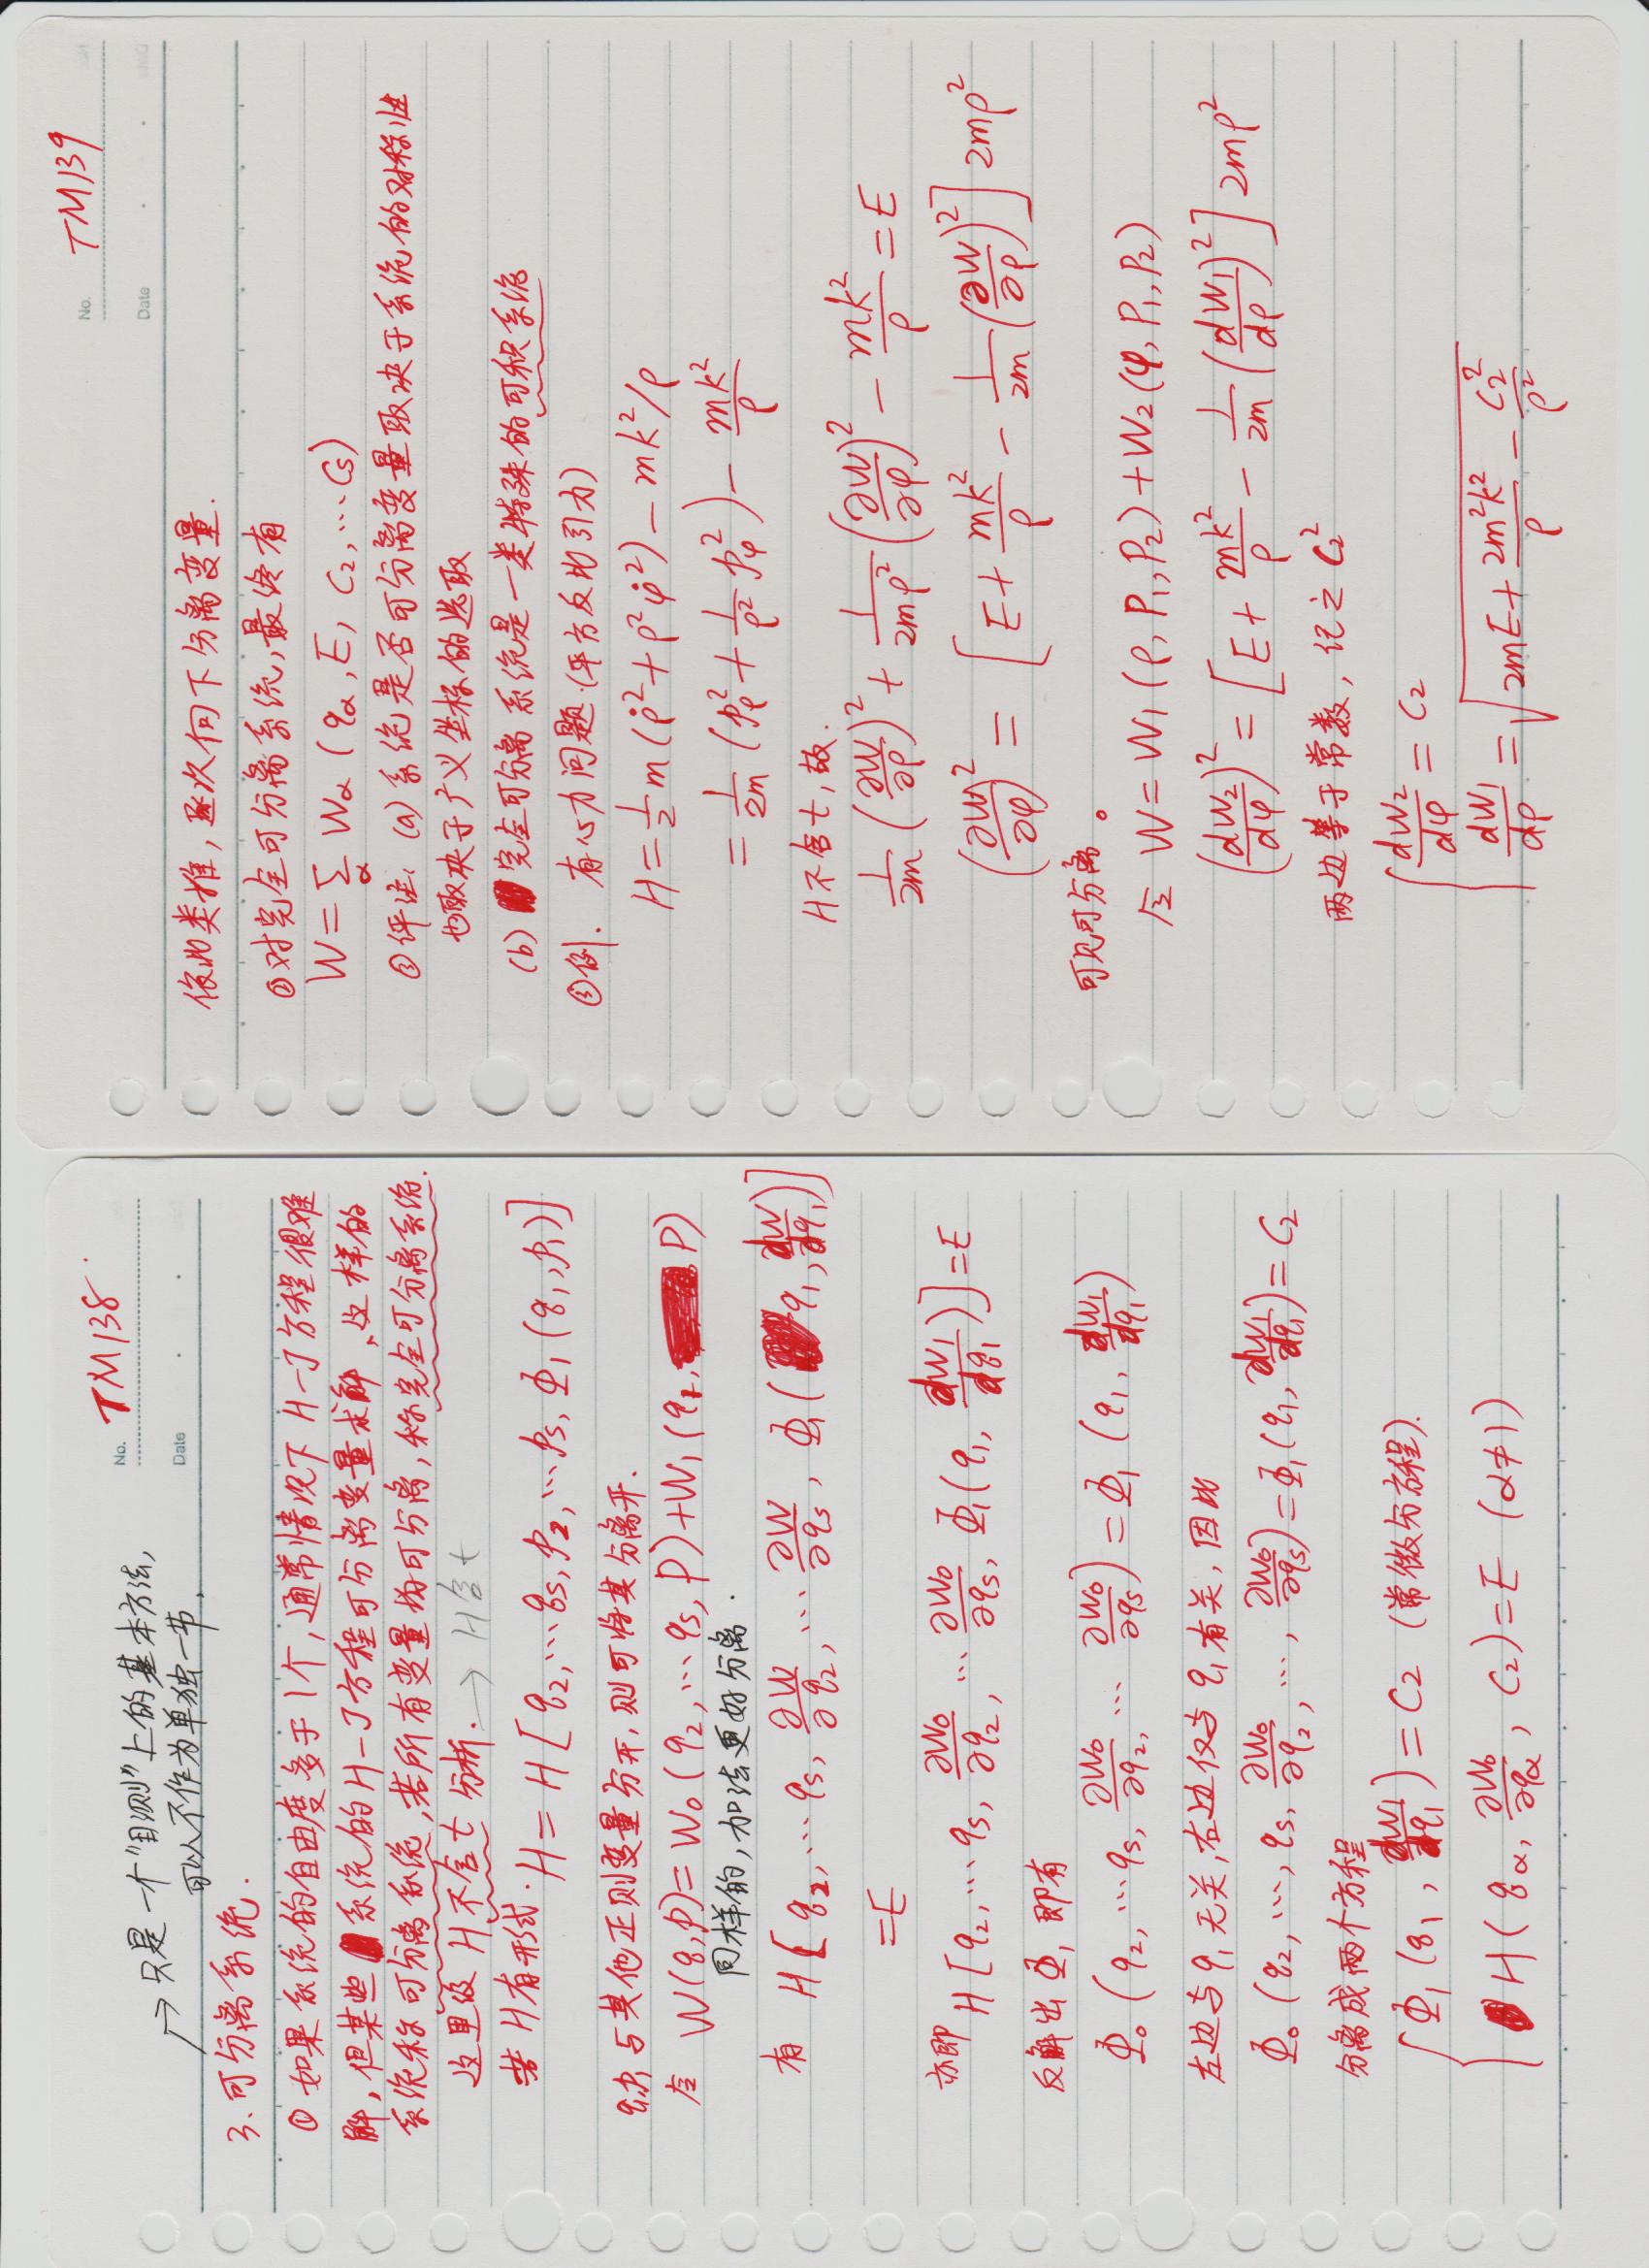 No. TM138
Date
→ 只是一个"目测"上的基本方法,
可以不作为单独一节.
3. 可分离系统.
① 如果系统的自由度多于1个, 通常情况下 H-J方程很难
解, 但某些系统的H-J方程可分离变量求解, 这样的
系统称可分离系统, 若所有变量均可分离, 称完全可分离系统.
这里仅 H不含t 分析. → H含t
若 H有形式. H = H[q₂, … qₛ, p₂, … pₛ, Φ₁(q₁, p₁)]
q₁, p₁ 与其他正则变量分开, 则可将其分离开.
令 W(q, p) = W₀(q₂, … qₛ, P) + W₁(q₁, P)
同样的, 加法更好分离.
有 H[q₂, … qₛ, ∂W/∂q₂, … ∂W/∂qₛ, Φ₁(q₁, dW/dq₁)]
= E
亦即 H[q₂, … qₛ, ∂W₀/∂q₂, … ∂W₀/∂qₛ, Φ₁(q₁, dW₁/dq₁)] = E
反解出 Φ₁, 即有
Φ₀(q₂, … qₛ, ∂W₀/∂q₂, … ∂W₀/∂qₛ) = Φ₁(q₁, dW₁/dq₁)
左边与 q₁ 无关, 右边仅与 q₁ 有关, 因此
Φ₀(q₂, …, qₛ, ∂W₀/∂q₂, …, ∂W₀/∂qₛ) = Φ₁(q₁, dW₁/dq₁) = C₂
分离成两个方程
{ Φ₁(q₁, dW₁/dq₁) = C₂ (常微分方程).
H(qα, ∂W₀/∂qα, C₂) = E (α≠1)
No. TM139
Date
依此类推, 逐次向下分离变量.
② 对完全可分离系统, 最终有
W = Σ_α Wα(qα, E, C₂, … Cₛ)
③ 评注: (a) 系统是否可分离变量取决于系统的对称性
也取决于广义坐标的选取
(b) 完全可分离系统是一类特殊的可积系统
③ 例. 有心力问题. (平方反比引力)
H = 1/2 m(ρ̇² + ρ²φ̇²) - mk²/ρ
= 1/2m (p_ρ² + 1/ρ² p_φ²) - mk²/ρ
H不含t, 故.
1/2m (∂W/∂ρ)² + 1/2mρ² (∂W/∂φ)² - mk²/ρ = E
(∂W/∂φ)² = [E + mk²/ρ - 1/2m (∂W/∂ρ)²] 2mρ²
可见可分离。
令 W = W₁(ρ, P₁, P₂) + W₂(φ, P₁, P₂)
(dW₂/dφ)² = [E + mk²/ρ - 1/2m (dW₁/dρ)²] 2mρ²
两边等于常数, 记之 C₂²
{ dW₂/dφ = C₂
dW₁/dρ = √(2mE + 2m²k²/ρ - C₂²/ρ²)